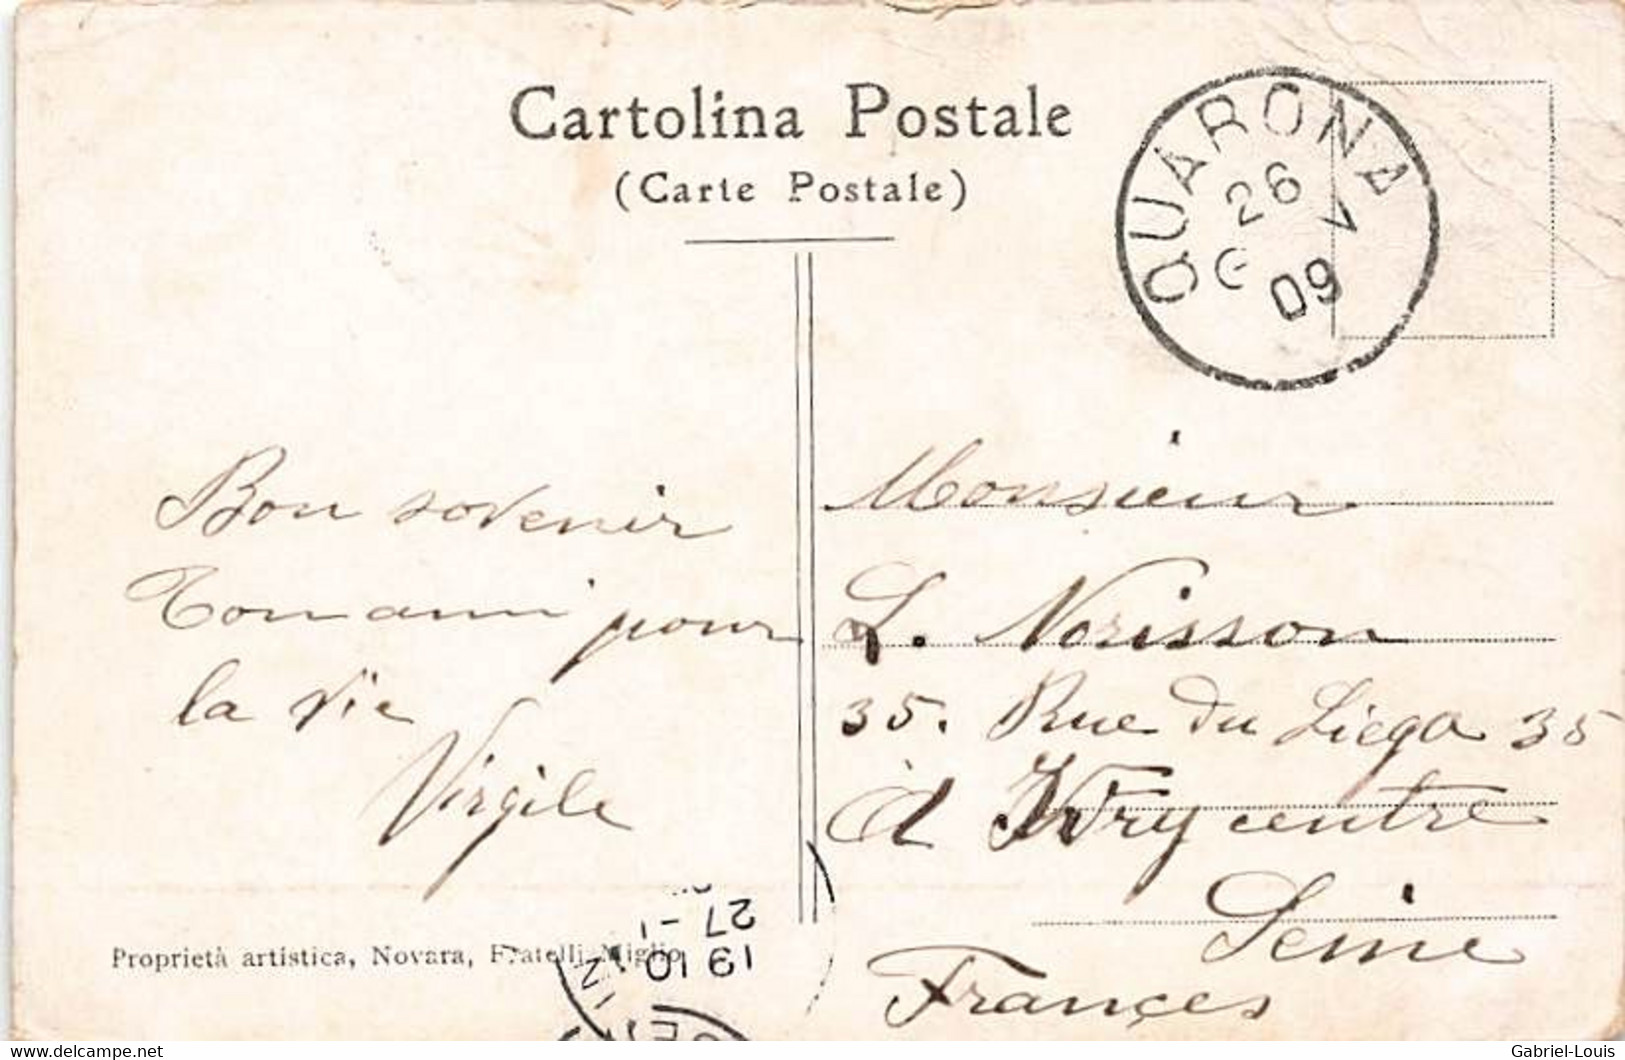 Cartolina Postale
(Carte Postale)
QUARONA
26
V
09
Bon sovenir
Ton ami pour
la vie
Virgile
Monsieur
L. Norisson
35. Rue du Liega 35
à Ivry centre
Seine
Françes
27 - 1
19 10
Proprietà artistica, Novara, Fratelli Miglio
www.delcampe.net
Gabriel-Louis